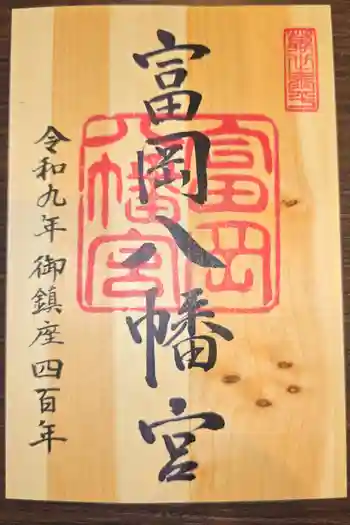 富岡八幡宮
富岡
八幡宮
令和九年 御鎮座四百年